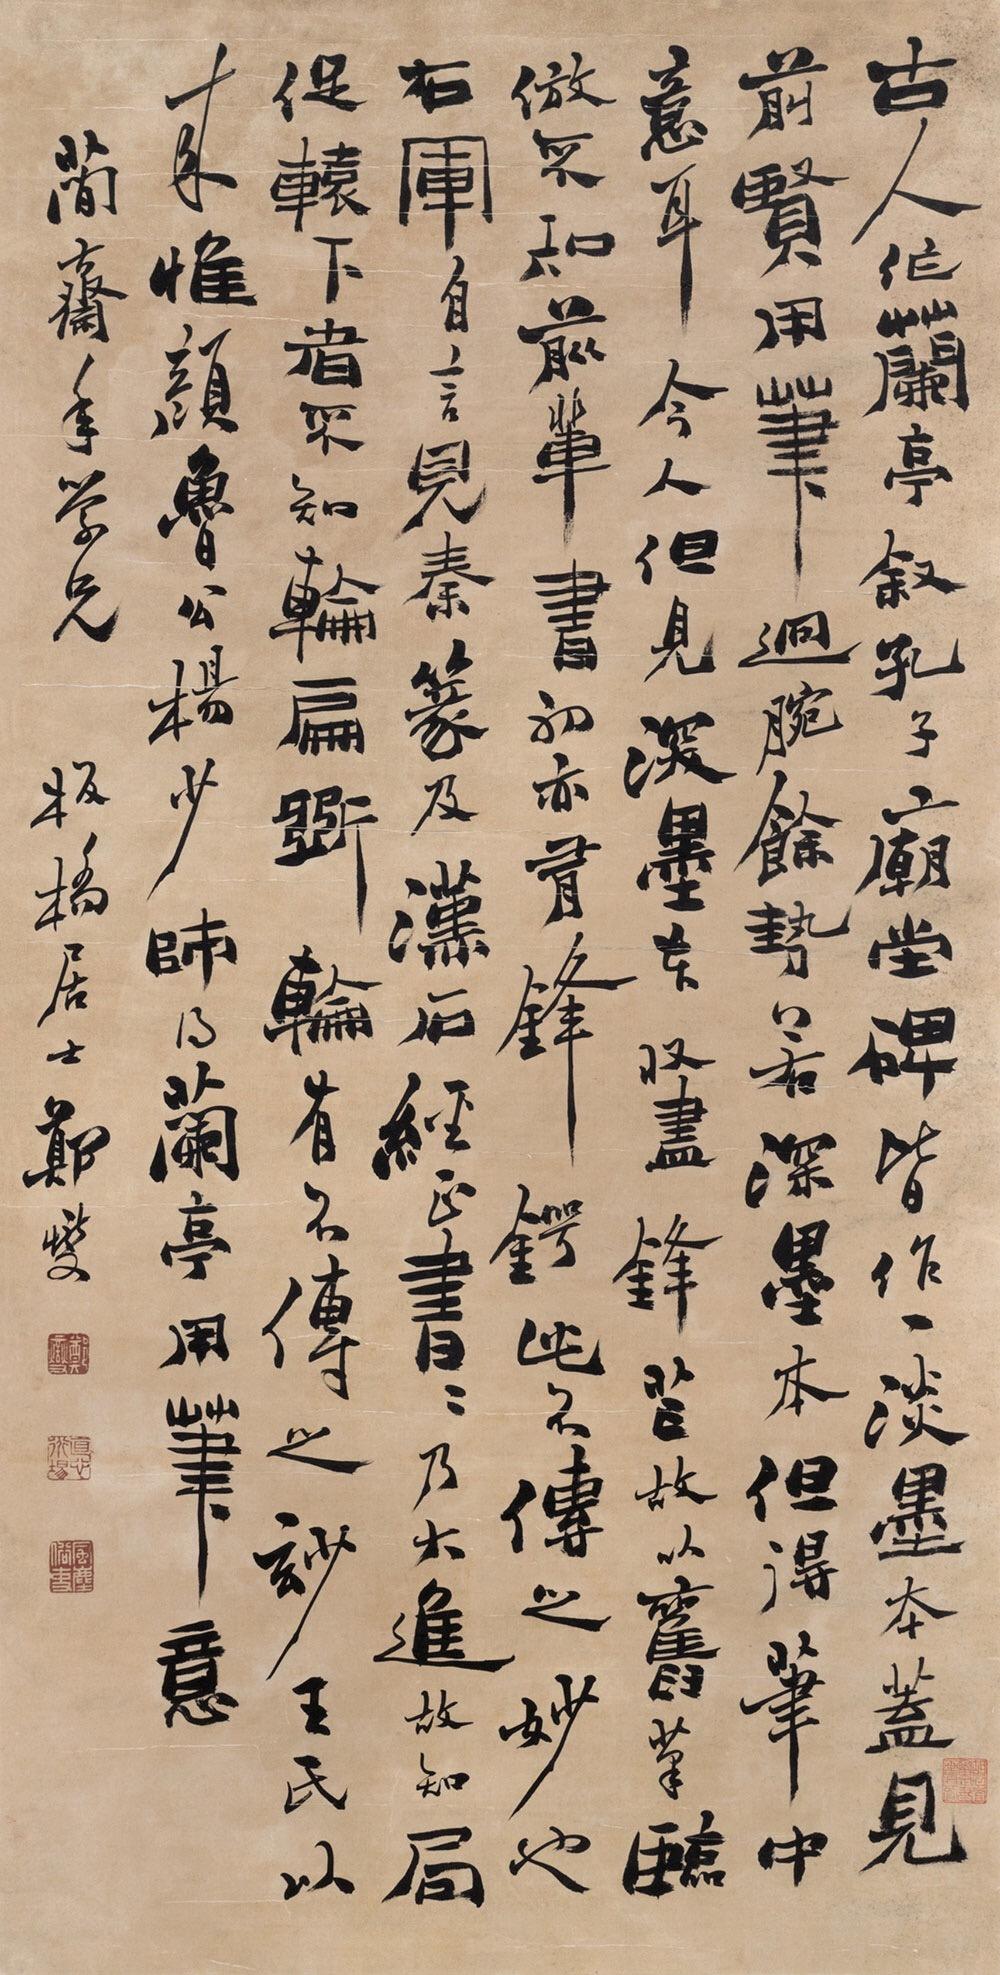 古人作蘭亭叙孔子廟堂碑皆作一淡墨本蓋見
前賢用筆迴腕餘勢以若深墨本但得筆中
意耳今人但見深墨本收盡鋒芒故以舊筆臨
倣不知前輩書初亦有鋒鍔此不傳之妙也
右軍自言見秦篆及漢石經正書二乃大進故知局
促轅下者不知輪扁斲輪有不傳之妙王氏以
来惟顔魯公楊少師得蘭亭用筆意
蘭齋年学兄 板橋居士鄭燮